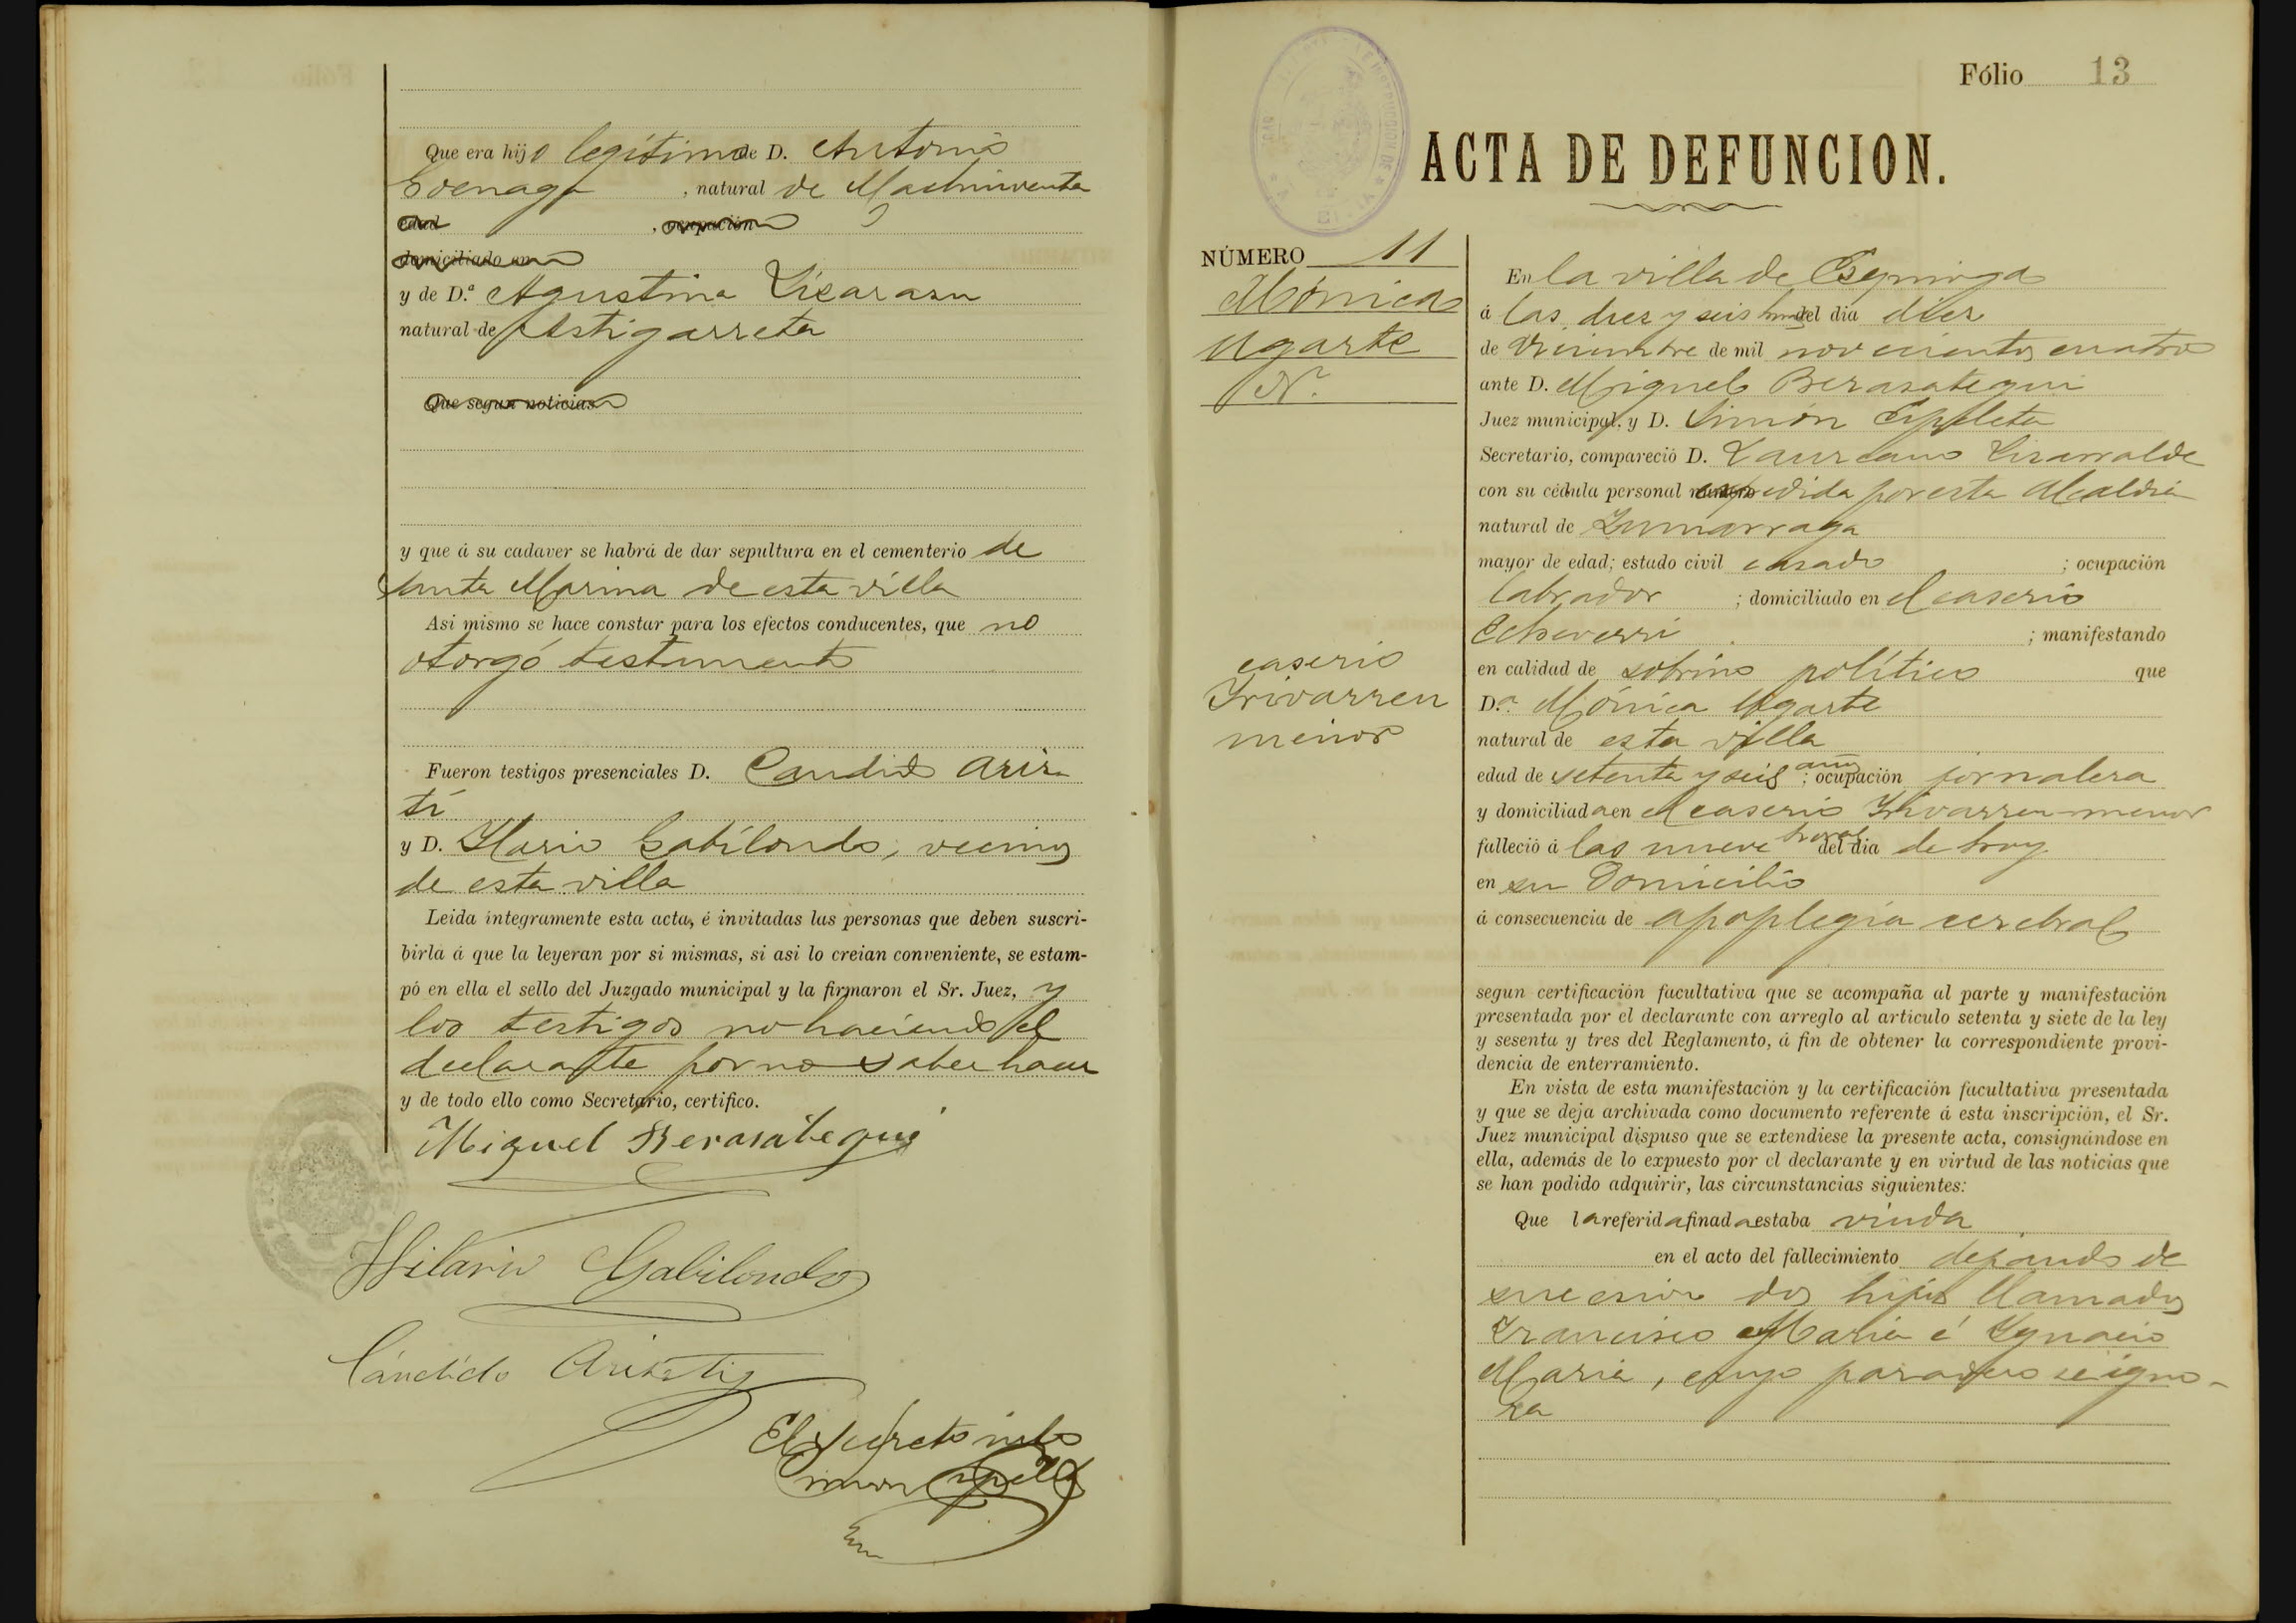 Que era hijo legítimo de D. Antonio
Goenaga, natural de Machinventa
edad, ocupación
domiciliado en
y de D.ª Agustina Lizarazu
natural de Astigarreta
Que segun noticias
y que á su cadaver se habrá de dar sepultura en el cementerio de
Santa Marina de esta villa
Asi mismo se hace constar para los efectos conducentes, que no
otorgó testamento
Fueron testigos presenciales D. Candido Ariz-
ti
y D. Ylario Gabilondo, vecinos
de esta villa
Leida íntegramente esta acta, é invitadas las personas que deben suscri-
birla á que la leyeran por si mismas, si asi lo creian conveniente, se estam-
pó en ella el sello del Juzgado municipal y la firmaron el Sr. Juez, y
los testigos no haciendo el
declarante por no saber hacer
y de todo ello como Secretario, certifico.
Miguel Berasategui
Hilario Gabilondo
Cándido Ariztí
El Secretario
Simon Espeleta
Fólio 13
ACTA DE DEFUNCION.
NÚMERO 11
Mónica
Ugarte
N.
caserio
Yrivarren
menor
En la villa de Ezquioga
á las diez y seis horas del dia diez
de Diciembre de mil novecientos cuatro
ante D. Miguel Berasategui
Juez municipal, y D. Simón Espeleta
Secretario, compareció D. Laureano Lizarralde
con su cédula personal expedida por esta Alcaldia
natural de Zumarraga
mayor de edad; estado civil casado; ocupación
labrador; domiciliado en el caserio
Echeverri; manifestando
en calidad de sobrino político que
D.ª Mónica Ugarte
natural de esta villa
edad de setenta y seis años; ocupación jornalera
y domiciliada en el caserio Yrivarren menor
falleció á las nueve horas del dia de hoy
en su domicilio
á consecuencia de apoplegia cerebral
segun certificación facultativa que se acompaña al parte y manifestación
presentada por el declarante con arreglo al artículo setenta y siete de la ley
y sesenta y tres del Reglamento, á fin de obtener la correspondiente provi-
dencia de enterramiento.
En vista de esta manifestación y la certificación facultativa presentada
y que se deja archivada como documento referente á esta inscripción, el Sr.
Juez municipal dispuso que se extendiese la presente acta, consignándose en
ella, además de lo expuesto por el declarante y en virtud de las noticias que
se han podido adquirir, las circunstancias siguientes:
Que la referida finada estaba viuda
en el acto del fallecimiento dejando de
sucesion dos hijos llamados
Francisco Maria é Ygnacio
Maria, cuyo paradero se igno-
ra